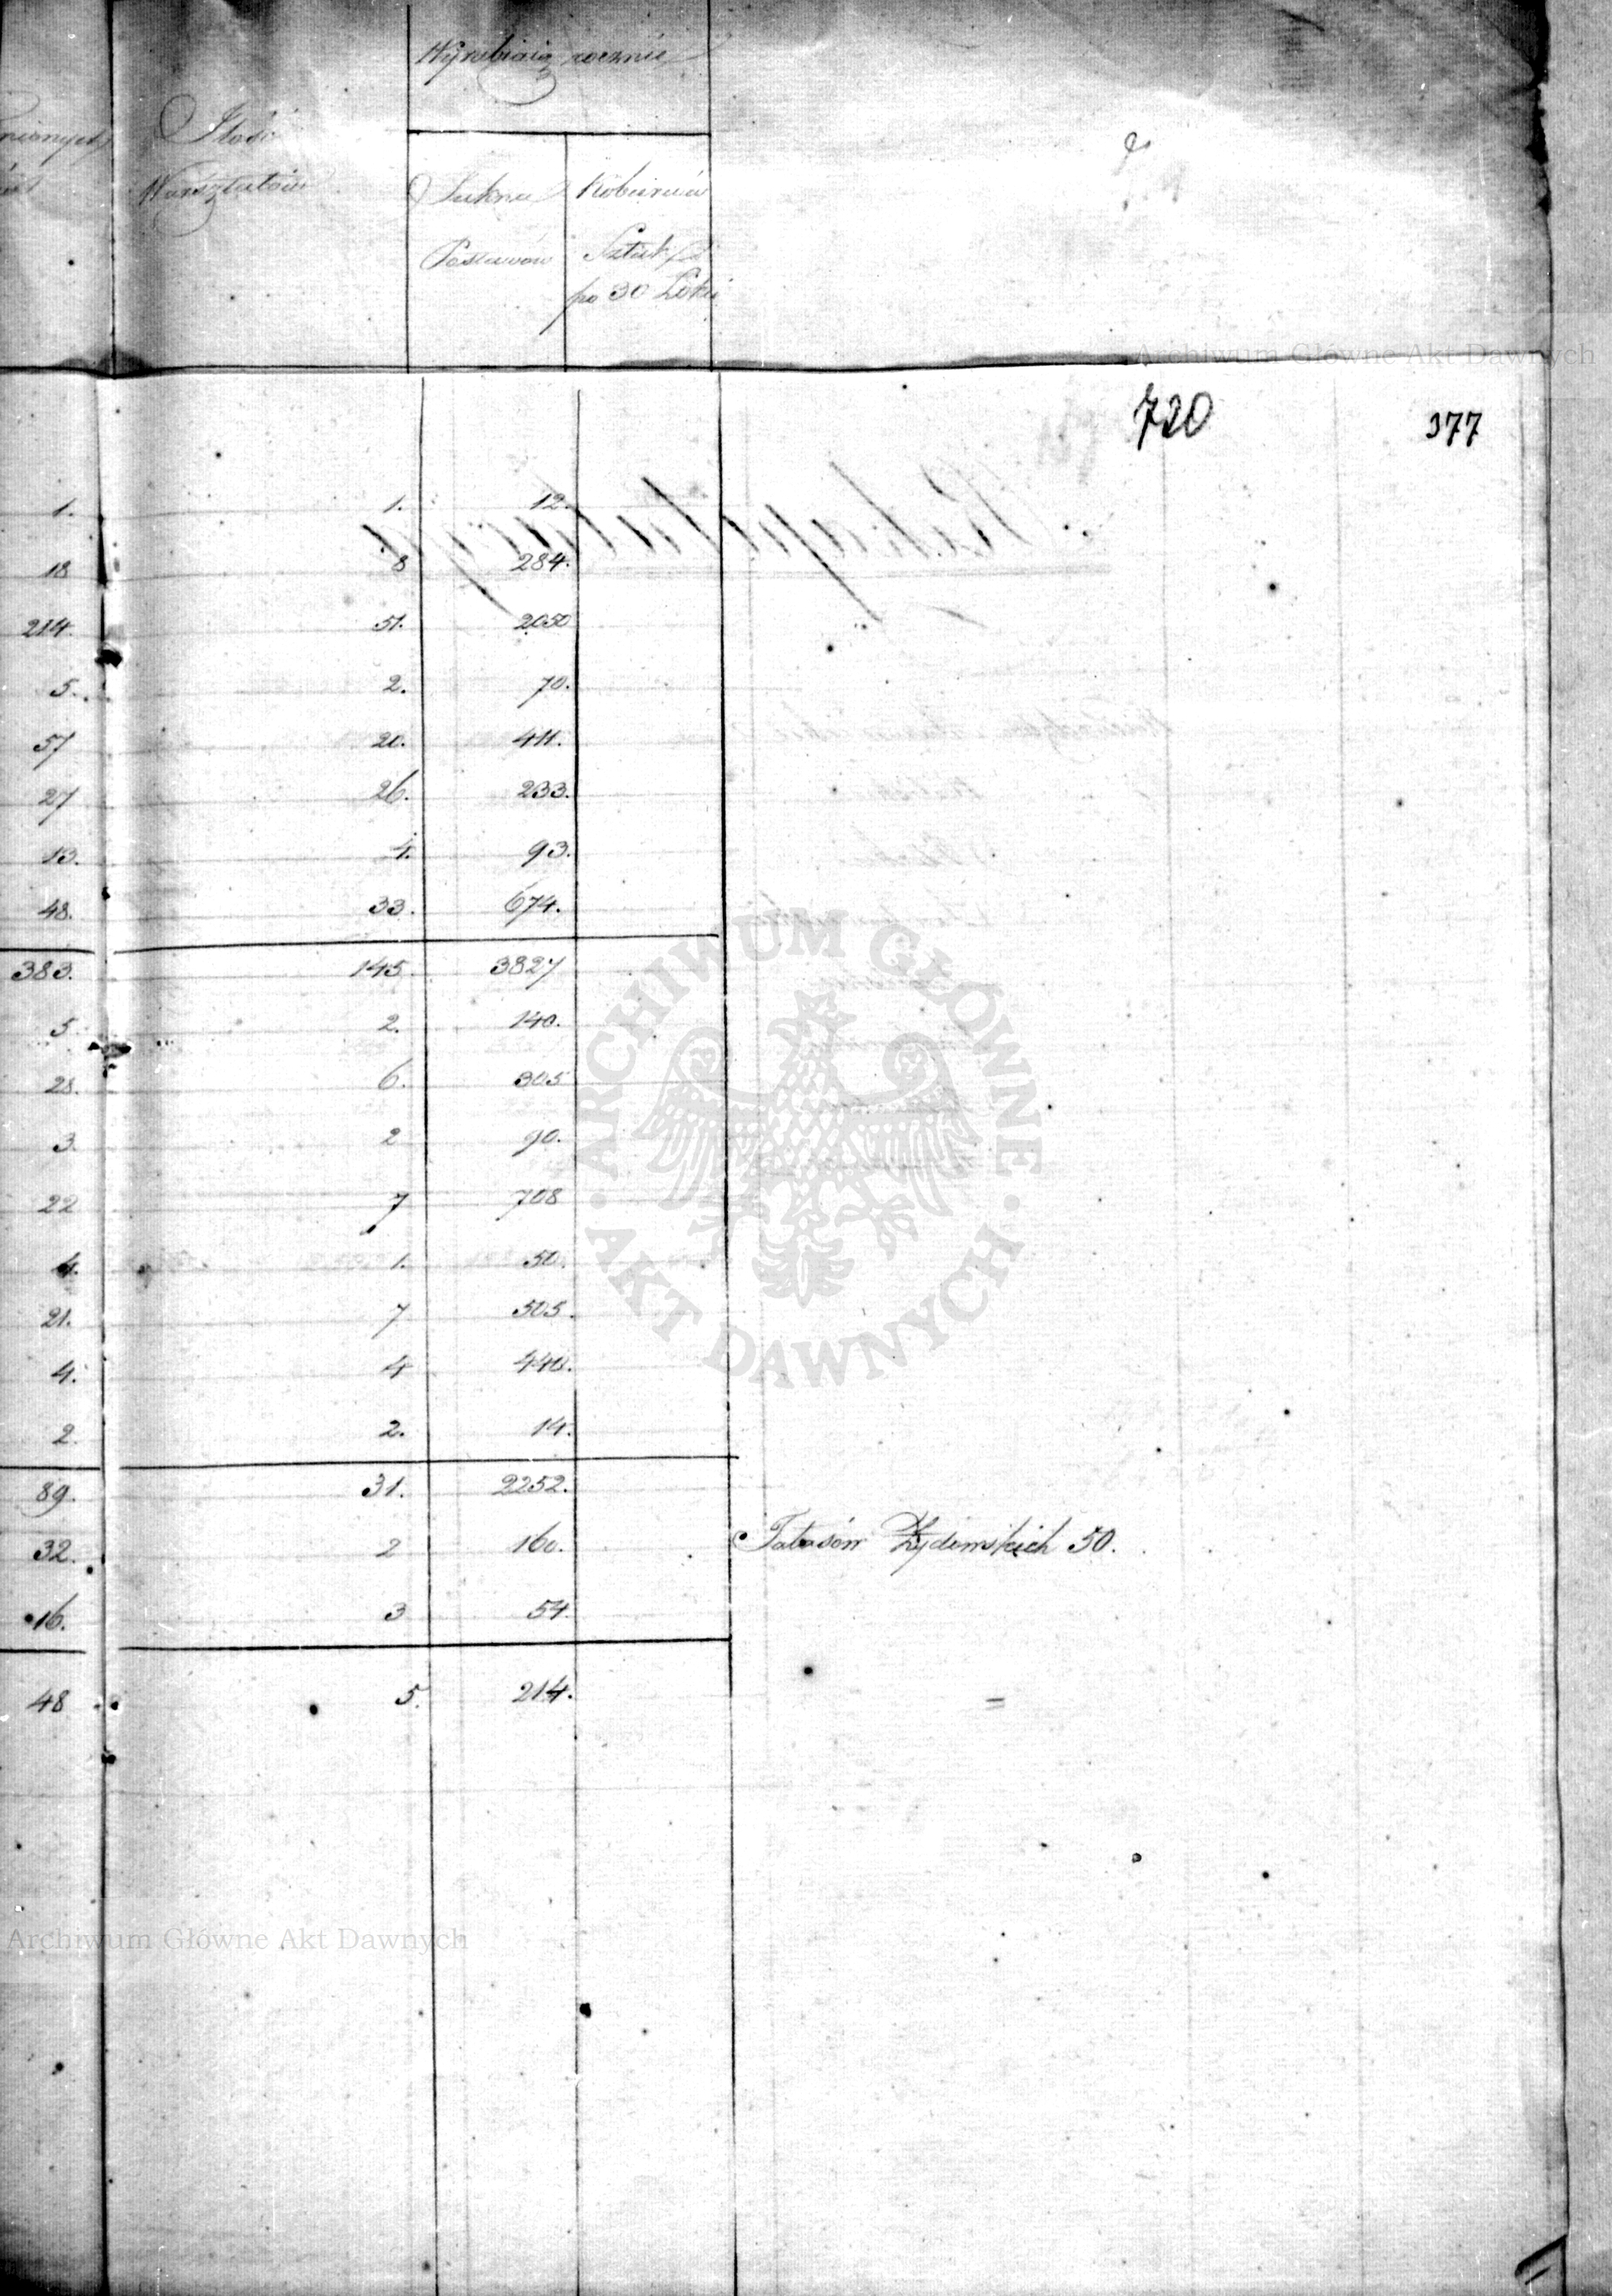 Wyrabiaią rocznie
Ilość
Warsztatów
Sukna
Postawów
Kobierców
Sztuk
po 30 Łokci
Archiwum Główne Akt Dawnych
720 377
1. 1. 12.
18 8 284.
214. 51. 2050
5. 2. 70.
57 20. 411.
27 26. 233.
13. 4. 93.
48. 33. 674.
383. 145. 3827
5 2. 140.
28. 6. 305
3 2 90.
22 7 708
4. 1. 50.
21. 7 505.
4. 4 440.
2. 2. 14.
89. 31. 2252.
32. 2 160. Tałasów Żydowskich 50.
16. 3 54.
48 5. 214.
ARCHIWUM GŁÓWNE
AKT DAWNYCH
Archiwum Główne Akt Dawnych